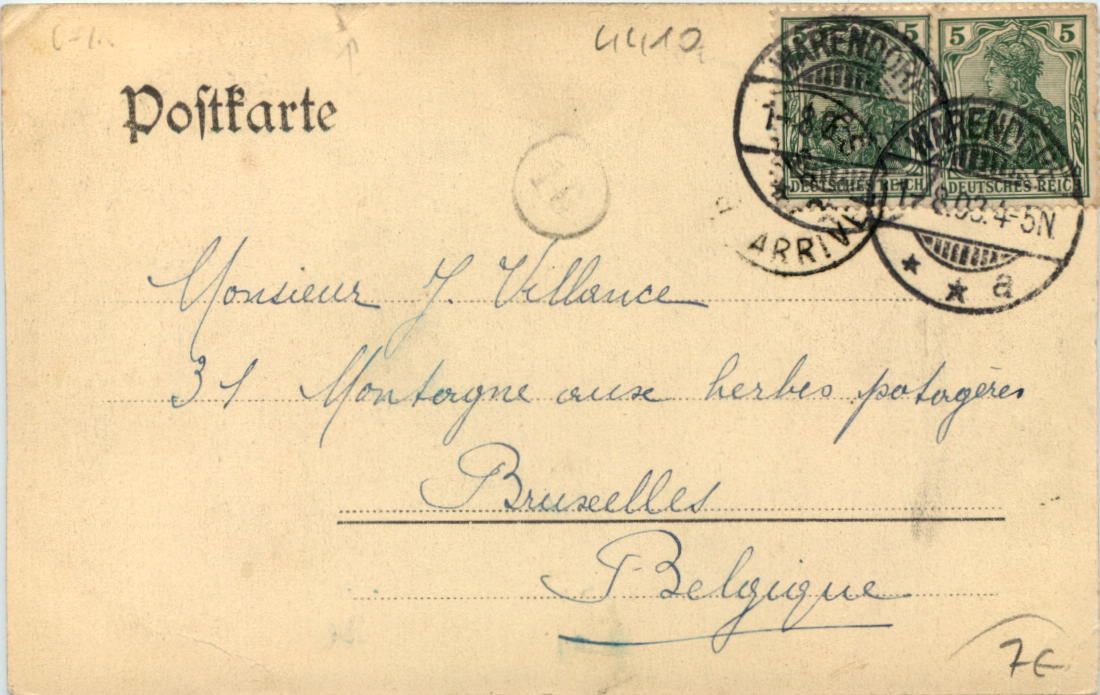 4410
Postkarte
5 5
WARENDORF
DEUTSCHES REICH
DEUTSCHES REICH
ARRIVÉE
WARENDORF
1.8.03. 4-5N.
* * a
Monsieur J. Villance
31 Montagne aux herbes potagères
Bruxelles
Belgique
7€